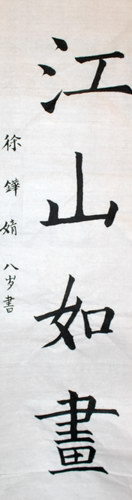 江山如畫
徐鐸婧八岁書